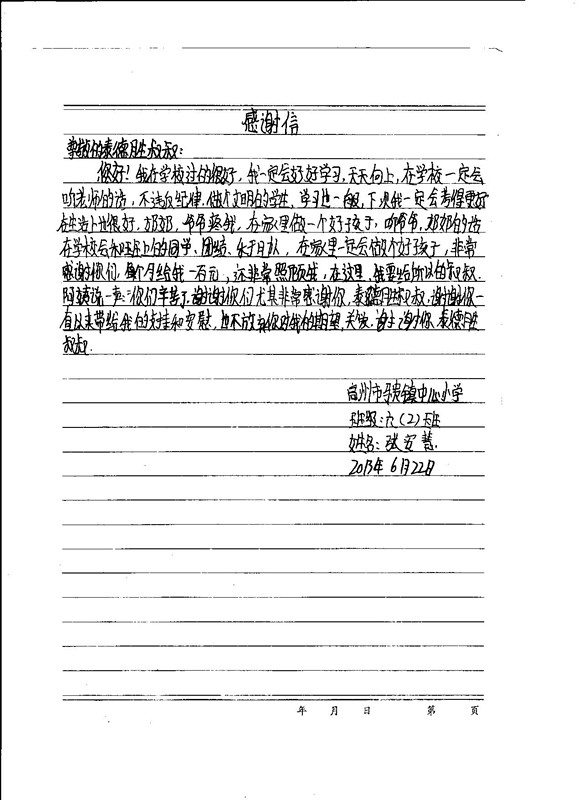 感谢信
尊敬的袁德胜叔叔：
您好！我在学校过的很好，我一定会好好学习，天天向上，在学校一定会
听老师的话，不违反纪律，做个文明的学生，学习进一般，下次我一定会考得更好
在生活上也很好，奶奶，爷爷疼我，在家里做一个好孩子，听爷爷，奶奶的话
在学校会和班上的同学，团结，乐于助人，在家里一定会做个好孩子，非常
感谢你们，每个月给我一百元，还非常照顾我，在这里，我要给所以的叔叔.
阿姨说一声：你们辛苦了，谢谢你们尤其非常感谢你，袁德胜叔叔，谢谢你一
直以来带给我的支持和安慰，也不放弃你对我的期望，关心，谢谢你袁德胜
叔叔.
镇中心小学
班级：六（2）班
姓名：张
2013年6月22日
年 月 日 第 页